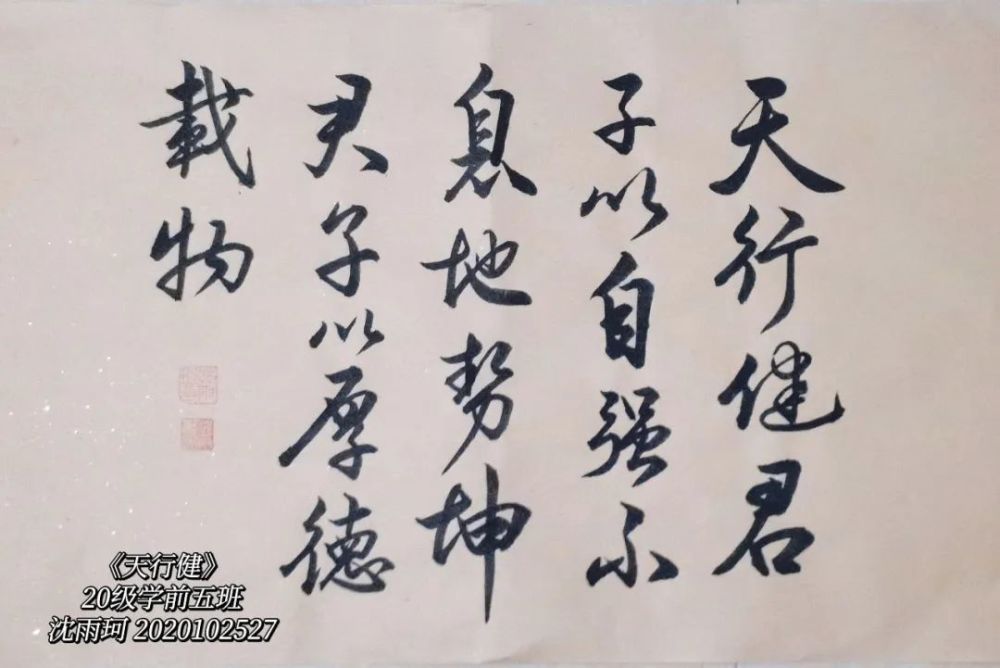 天行健君
子以自强不
息地势坤
君子以厚德
載物
《天行健》
20级学前五班
沈雨珂 2020102527